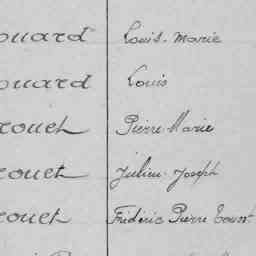 ouard Louis-Marie
ouard Louis
rouet Pierre Marie
rouet Julien Joseph
rouet Frédéric Pierre